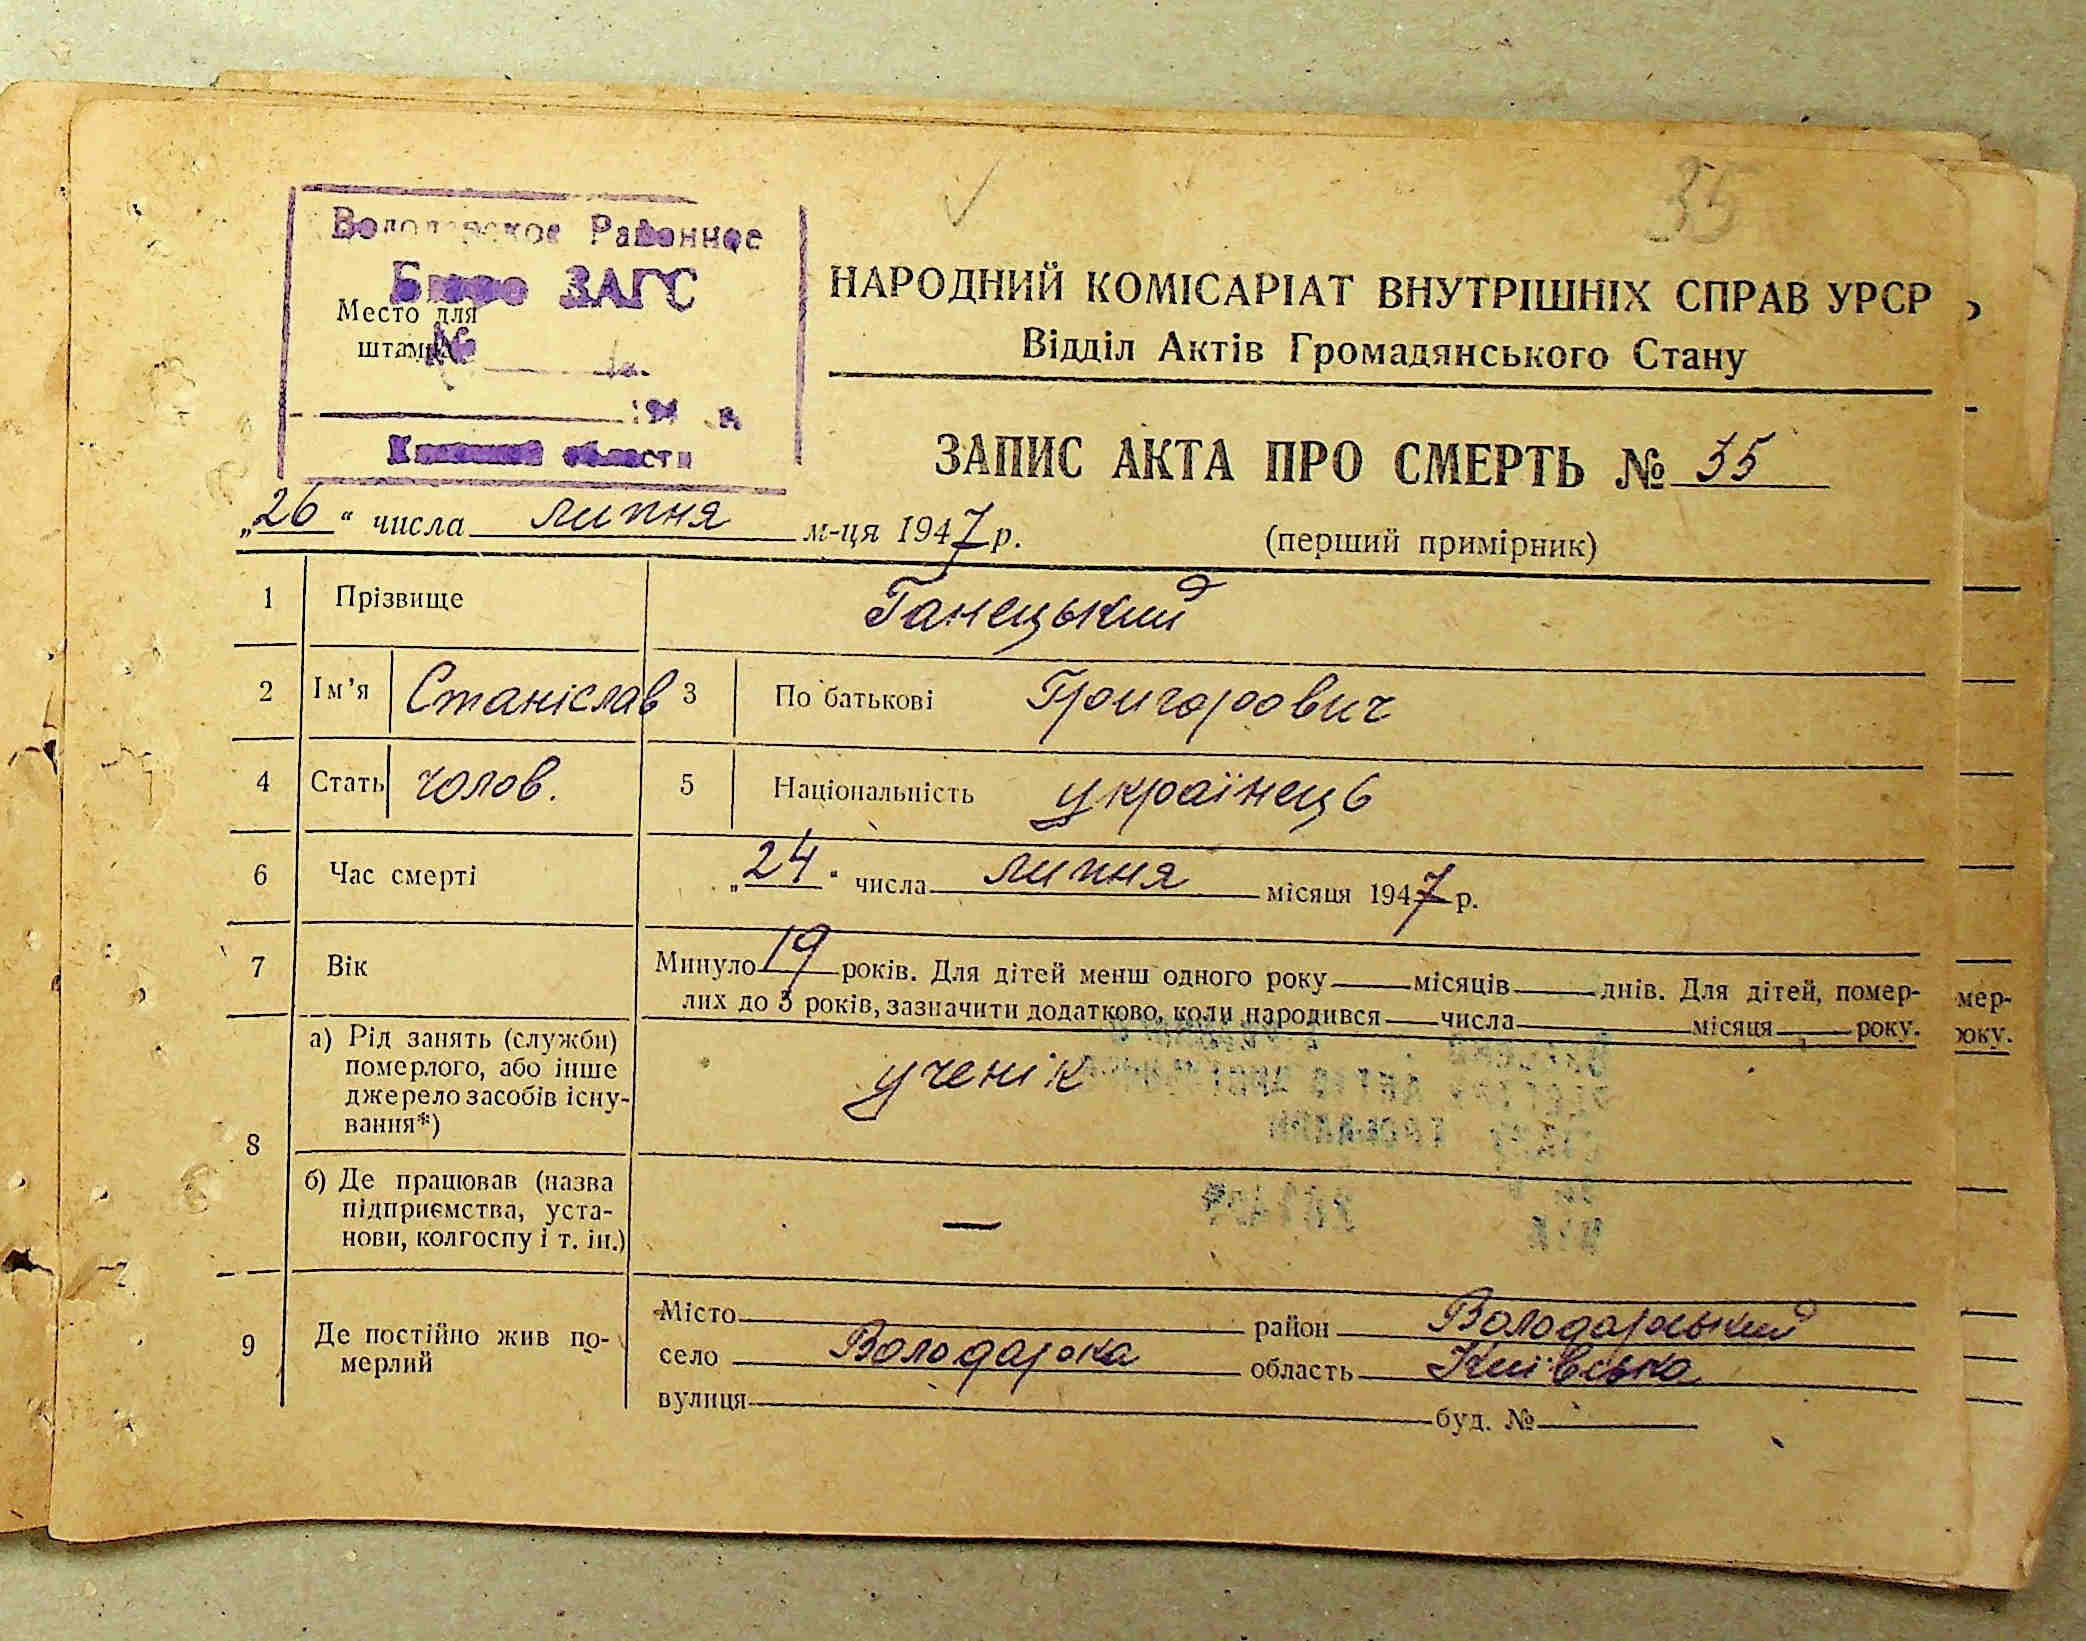 35
Володарское Районное
Бюро ЗАГС
Место для
штампа
№
194 г.
Киевской области
НАРОДНИЙ КОМІСАРІАТ ВНУТРІШНІХ СПРАВ УРСР
Відділ Актів Громадянського Стану
ЗАПИС АКТА ПРО СМЕРТЬ № 35
„26“ числа липня м-ця 1947 р.
(перший примірник)
1 Прізвище Ганецький
2 Ім’я Станіслав 3 По батькові Григорович
4 Стать чолов. 5 Національність українець
6 Час смерті „24“ числа липня місяця 1947 р.
7 Вік Минуло 19 років. Для дітей менш одного року місяців днів. Для дітей, помер-
лих до 3 років, зазначити додатково, коли народився числа місяця року.
8 а) Рід занять (служби)
померлого, або інше
джерело засобів існу-
вання*)
ученік
б) Де працював (назва
підприємства, уста-
нови, колгоспу і т. ін.)
—
9 Де постійно жив по-
мерлий
Місто район Володарський
село Володарка область Київська
вулиця буд. №
мер-
оку.